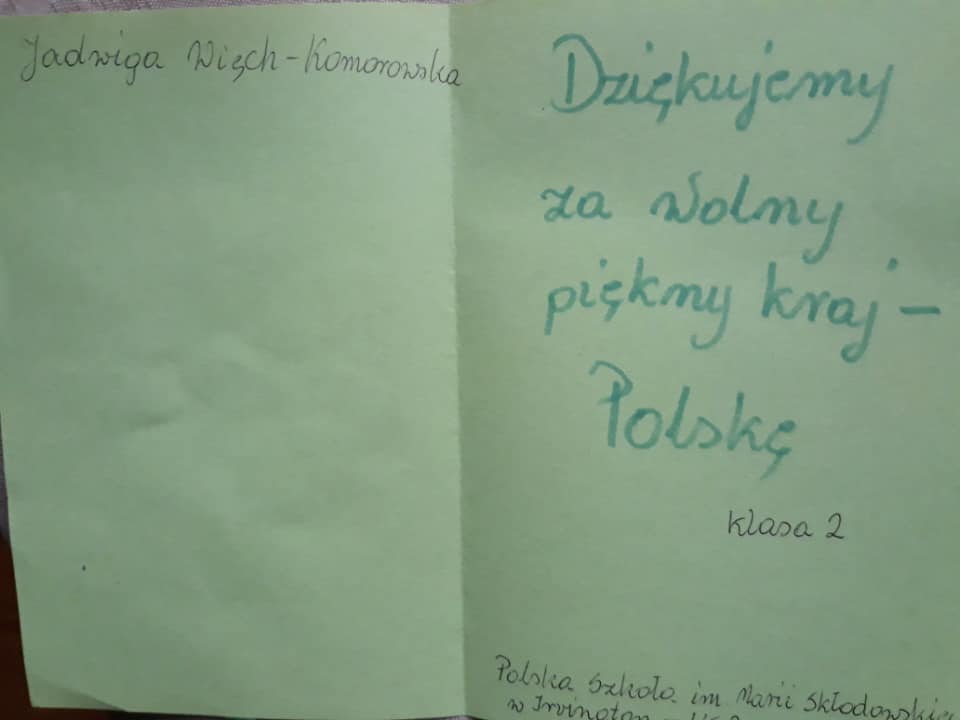 Jadwiga Więch-Komorowska
Dziękujemy
za wolny
piękny kraj -
Polskę
klasa 2
Polska Szkoła im Marii Skłodowskiej
w Irvington